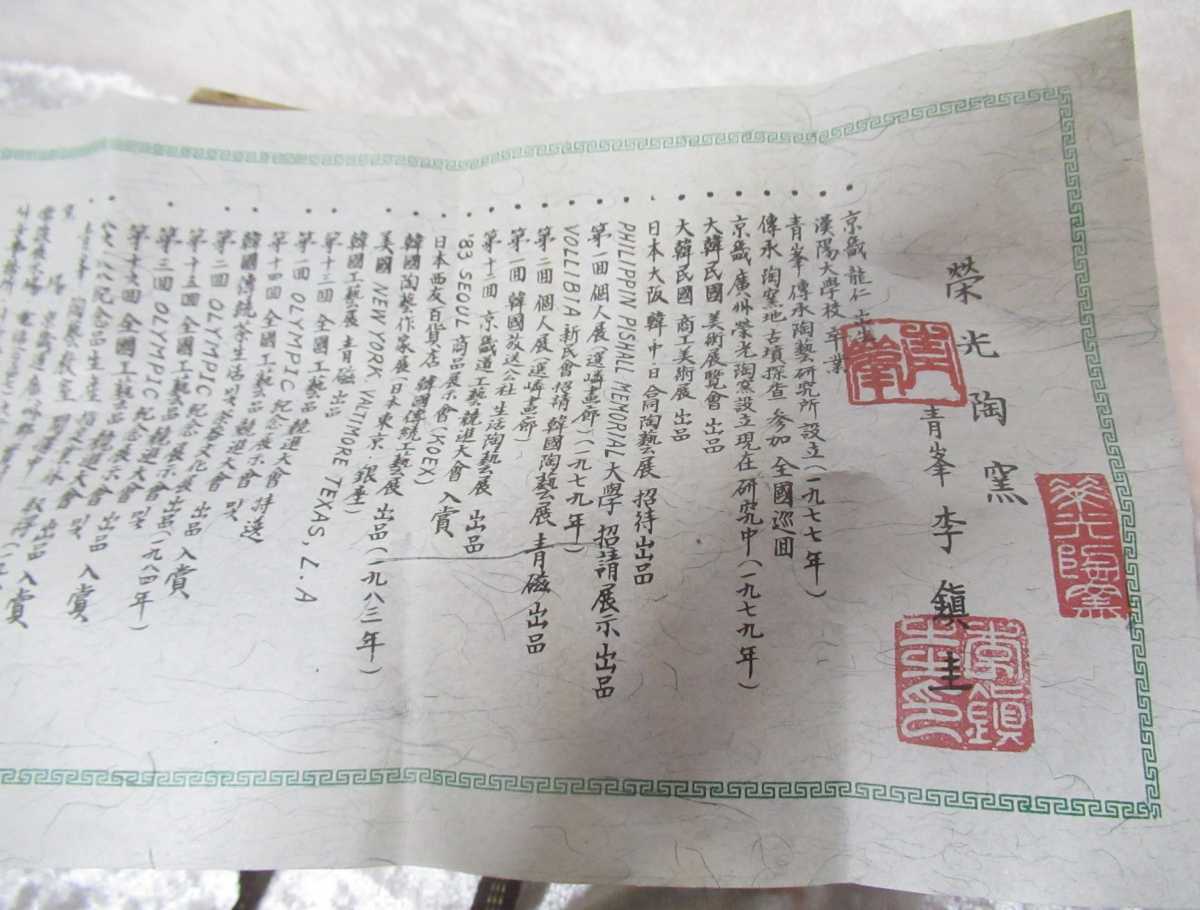 榮光陶窯
青峯 李鎭圭
榮光陶窯
青峯
李鎭圭印
京畿 龍仁 出生
漢陽大學校 卒業
青峯 傳承陶藝研究所 設立(一九七七年)
傳承 陶窯地 古墳探査 參加 全國巡回
京畿 廣州 榮光陶窯設立 現在 研究中(一九七九年)
大韓民國 美術展覽會 出品
大韓民國 商工美術展 出品
日本大阪 韓中日 合同陶藝展 招待出品
PHILIPPIN PISHALL MEMORIAL 大學 招請展示出品
第一回 個人展(選嶙畫廊)(一九七九年)
VOLLIBIA 新民會招請 韓國陶藝展 青磁出品
第二回 個人展(選嶙畫廊)
第一回 韓國放送公社 生活陶藝展 出品
第十三回 京畿道工藝品競進大會 入賞
'83 SEOUL 商品展示會(KOEX)
日本西友百貨店 韓國傳統工藝展 出品(一九八三年)
韓國陶藝作家展(日本東京, 銀座)
美國 NEW YORK, VALTIMORE TEXAS, L.A
韓國工藝展 青磁 出品
第十三回 全國工藝品 競進大會
第一回 OLYMPIC 紀念 展示會 特選
第十四回 全國工藝品 競進大會 및
韓國傳統 茶生活 및 茶器文化展 入賞
第二回 OLYMPIC 紀念 展示會 出品(一九八四年)
第十五回 全國工藝品 競進大會 및
第三回 OLYMPIC 紀念 展示會 出品 入賞
第十六回 全國工藝品 競進大會 및
八八紀念品生産 出品 入賞
陶藝教室